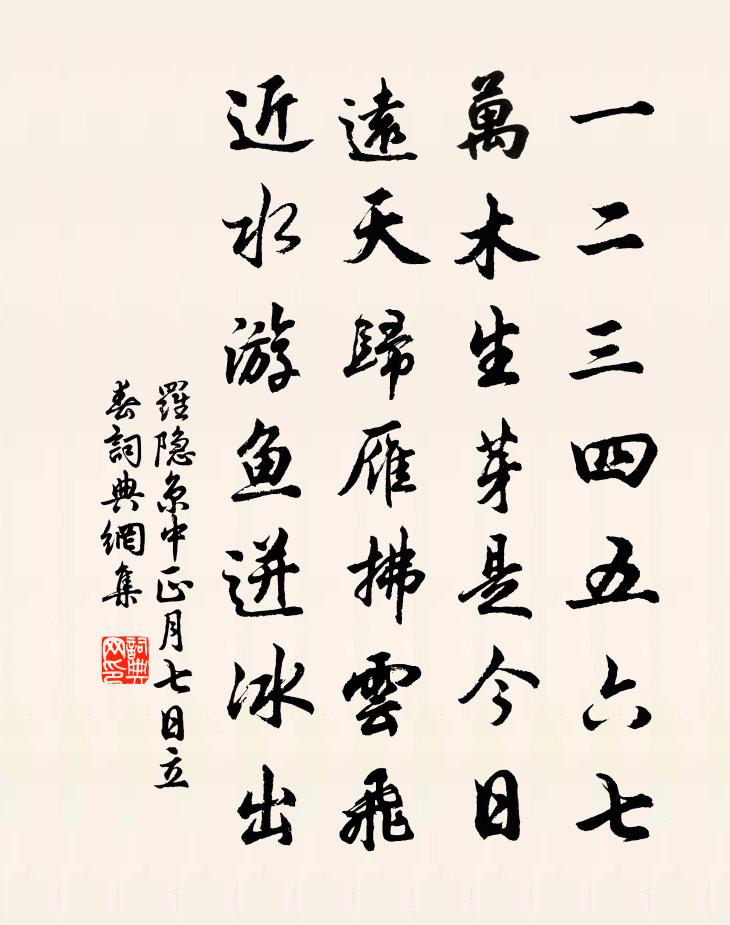 一二三四五六七
萬木生芽是今日
遠天歸雁拂雲飛
近水游鱼迸冰出
羅隐京中正月七日立
春詞典網集
詞典网印